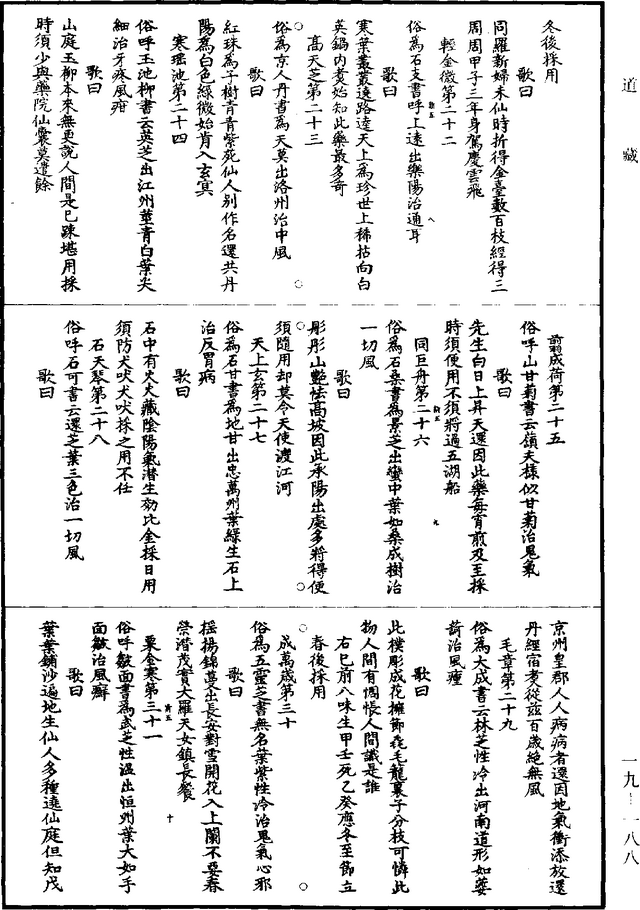 道藏
冬後採用
歌曰
同羅新婦未仙時折得金臺數百枝經得三
周周甲子三年身駕慶雲飛
輕金微第二十二
俗為石支書呼上遠出樂陽治通耳
歌曰
寒葉叢叢遶路達天上為珍世上稀拈向白
英鍋內煑始知此藥最多奇
高天芝第二十三
俗為京人丹書為天莫出洛州治中風
歌曰
紅珠為子樹青青紫死仙人別作名還共丹
陽為白色綠微始肯入玄冥
寒瑶池第二十四
俗呼玉池柳書云英芝出江州莖青白葉尖
細治牙疼風疳
歌曰
山庭玉柳本來無更說人間是已踈堪用採
時須少與藥院仙囊莫遣餘
翦成荷第二十五
俗呼山甘菊書云嶺夫樣似甘菊治鬼氣
歌曰
先生白日上昇天還因此藥每育煎及至採
時須使用不須將過五湖船
同巨舟第二十六
俗為石桑書為景芝出蠻中葉如桑成樹治
一切風
歌曰
彤彤山艷怯高坡因此承陽出處多將得便
須隨用却莫令天使渡江河
天上玄第二十七
俗為石甘書為地甘出忠萬州葉綠生石上
治反胃病
歌曰
石中有犬犬藏陰陽氣潛生効比金採日用
須防犬吠犬吠採之用不任
石天琴第二十八
俗呼石可書云還芝葉三色治一切風
歌曰
京州皇郡人人病病者還因地氣衝添放還
丹經宿考從茲百歲絶無風
毛章第二十九
俗為大成書云林芝性冷出河南道形如蔞
蒟治風癉
歌曰
此樸彫成花擁節毳毛籠裹子分枝可憐此
物人間有惆悵人間識是誰
右巳前八味生甲壬死乙癸應冬至節立
春後採用
成萬歲第三十
俗為五靈芝書無名葉紫性冷治鬼氣心邪
歌曰
摇揚錦萼出長安對雪開花入上闌不要春
榮潛茂實大羅天女鎮長餐
粟金寒第三十一
俗呼皺面書為武芝性温出恒州葉大如手
面皺治風癬
歌曰
葉葉鋪沙遍地生仙人多種遶仙庭但知戊
一九–一八八